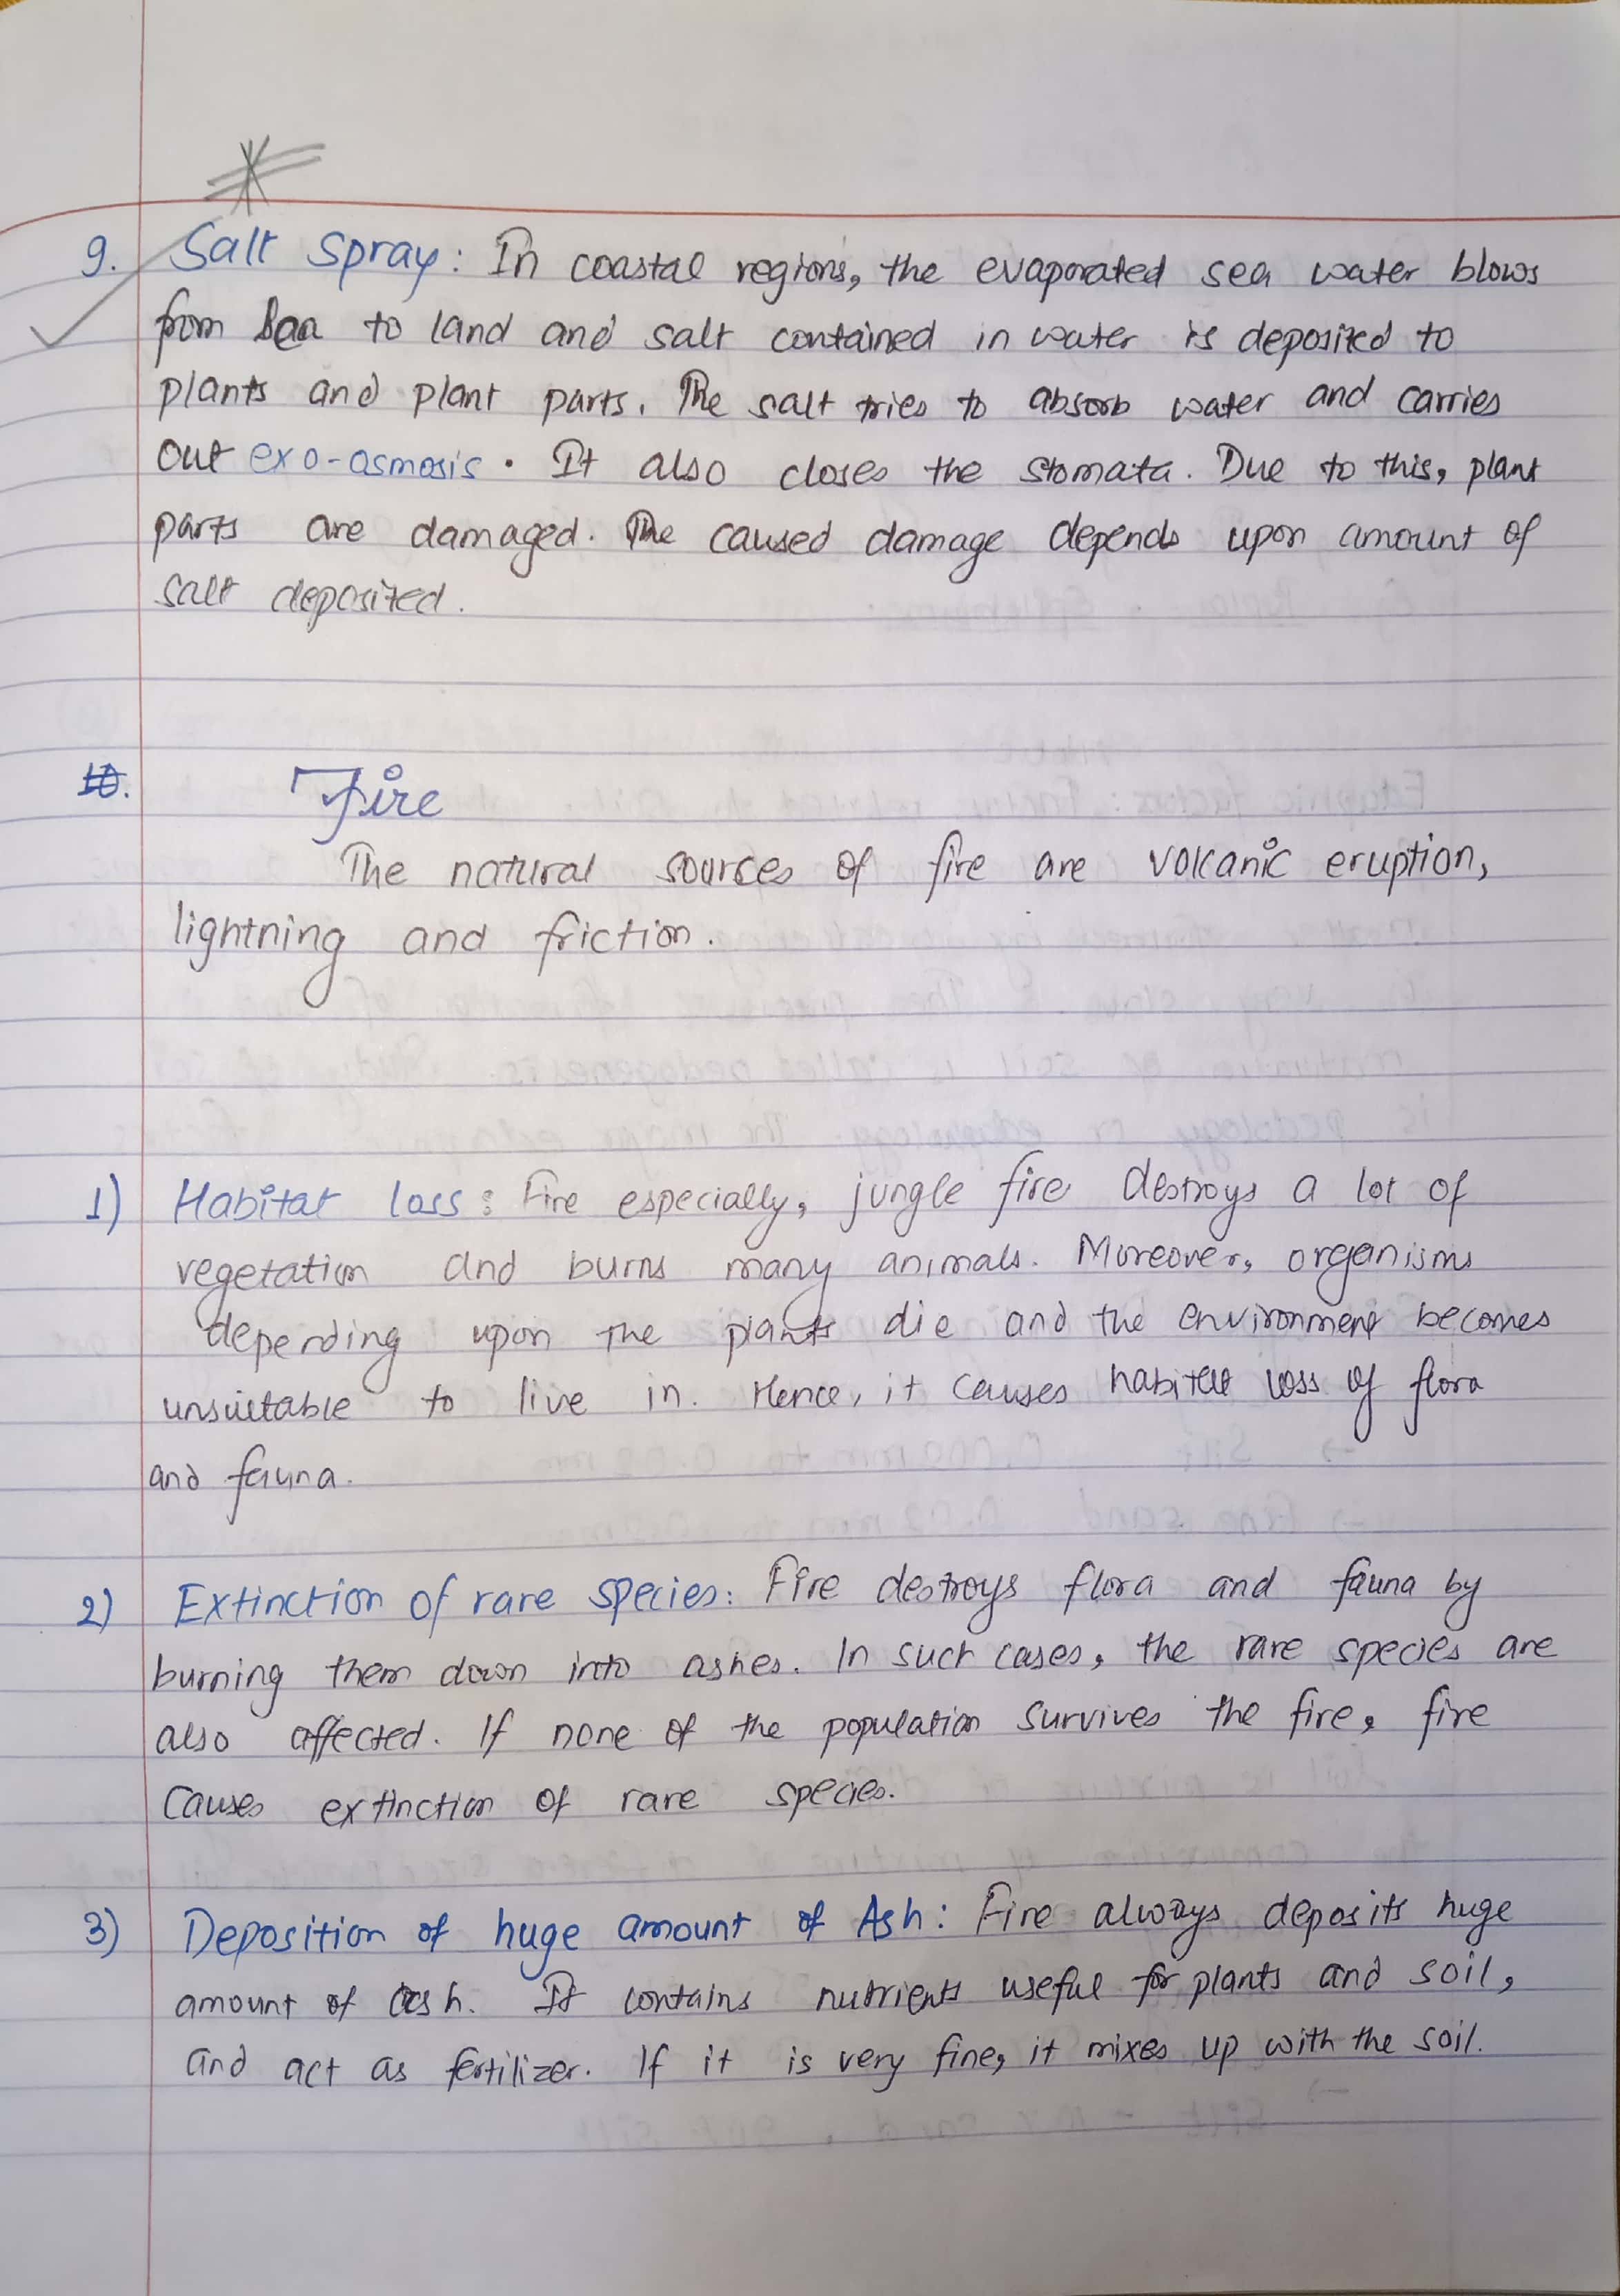 9. Salt spray: In coastal regions, the evaporated sea water blows
from sea to land and salt contained in water is deposited to
plants and plant parts. The salt tries to absorb water and carries
out exo-osmosis. It also closes the stomata. Due to this, plant
parts are damaged. The caused damage depends upon amount of
salt deposited.
10. Fire
The natural sources of fire are volcanic eruption,
lightning and friction.
1) Habitat loss: Fire especially, jungle fire destroys a lot of
vegetation and burns many animals. Moreover, organisms
depending upon the plants die and the environment becomes
unsuitable to live in. Hence, it causes habitat loss of flora
and fauna.
2) Extinction of rare species: Fire destroys flora and fauna by
burning them down into ashes. In such cases, the rare species are
also affected. If none of the population survives the fire, fire
causes extinction of rare species.
3) Deposition of huge amount of Ash: Fire always deposits huge
amount of ash. It contains nutrients useful for plants and soil,
and act as fertilizer. If it is very fine, it mixes up with the soil.